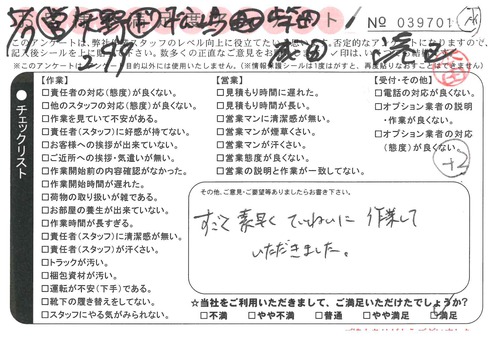 No 039701
このアンケートは、弊社
スタッフのレベル向上に役立てたい
否定的なアンケートになりますので、
記入後シールを上に
数多くの正直なご意見を
※このアンケートは
目的以外には使用いたしません。(※情報保護シールは1度はがすと、再度貼りなおすことはできません)
チェックリスト
【作業】
□責任者の対応(態度)が良くない。
□他のスタッフの対応(態度)が良くない。
□作業を見ていて不安がある。
□責任者(スタッフ)に好感が持てない。
□お客様への挨拶が出来ていない。
□ご近所への挨拶・気遣いが無い。
□作業開始前の内容確認がなかった。
□作業開始時間が遅れた。
□荷物の取り扱いが雑である。
□お部屋の養生が出来ていない。
□作業時間が長すぎる。
□責任者(スタッフ)に清潔感が無い。
□責任者(スタッフ)が汗くさい。
□トラックが汚い。
□梱包資材が汚い。
□運転が不安(下手)である。
□靴下の履き替えをしてない。
□スタッフにやる気がみられない。
【営業】
□見積もり時間に遅れた。
□見積もり時間が長い。
□営業マンに清潔感が無い。
□営業マンが煙草くさい。
□営業マンが汗くさい。
□営業態度が良くない。
□営業の説明と作業が一致してない。
【受付・その他】
□電話の対応が良くない。
□オプション業者の説明
・作業が良くない。
□オプション業者の対応
(態度)が良くない。
+2
その他、ご意見・ご要望等ありましたらお書き下さい。
すごく素早くていねいに作業して
いただきました。
☆当社をご利用いただきまして、ご満足いただけたでしょうか?
□不満 □やや不満 □普通 □やや満足 □満足